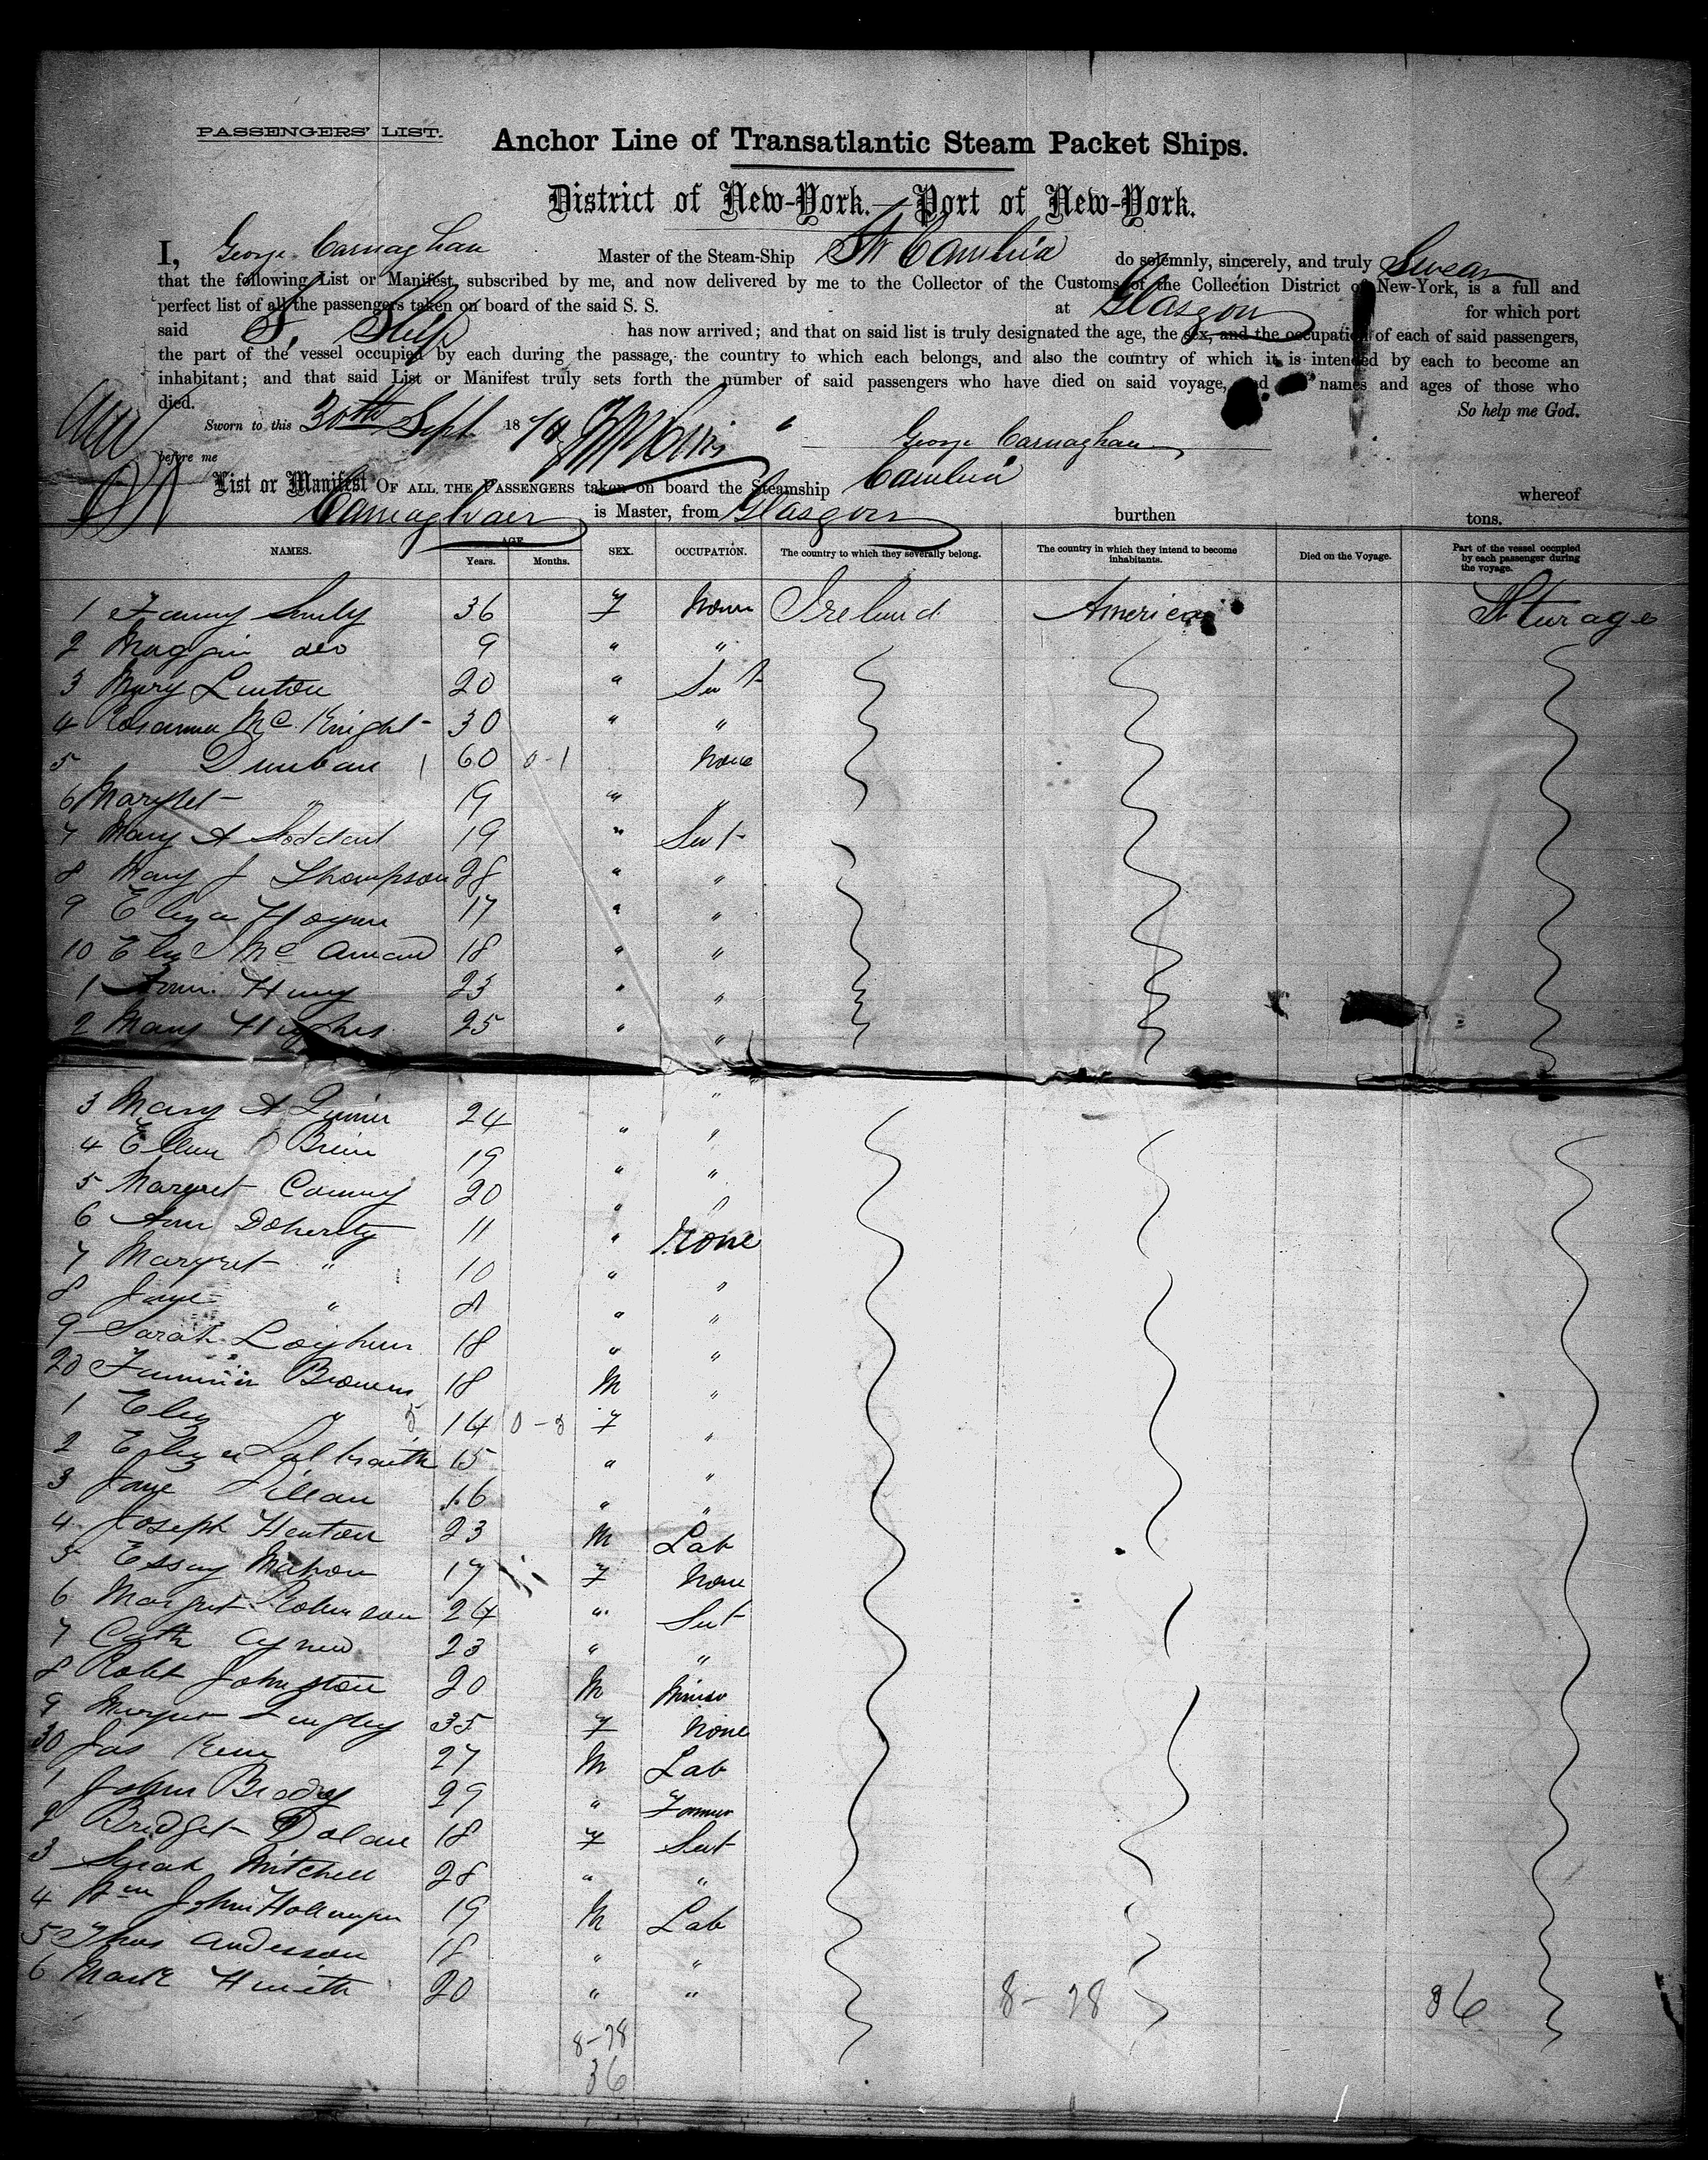 PASSENGERS' LIST.
Anchor Line of Transatlantic Steam Packet Ships.
District of New-York.—Port of New-York.
I, George Carnaghan Master of the Steam-Ship Str Cambria do solemnly, sincerely, and truly Swear
that the following List or Manifest, subscribed by me, and now delivered by me to the Collector of the Customs of the Collection District of New-York, is a full and
perfect list of all the passengers taken on board of the said S. S. at Glasgow for which port
said S. Ship has now arrived; and that on said list is truly designated the age, the sex, and the occupation of each of said passengers,
the part of the vessel occupied by each during the passage, the country to which each belongs, and also the country of which it is intended by each to become an
inhabitant; and that said List or Manifest truly sets forth the number of said passengers who have died on said voyage, names and ages of those who
died. So help me God.
Sworn to this 30th Sept 187
before me George Carnaghan
List or Manifest OF ALL THE PASSENGERS taken on board the Steamship Cambria whereof
Carnaghan is Master, from Glasgow burthen tons.
NAMES. AGE Years. Months. SEX. OCCUPATION. The country to which they severally belong. The country in which they intend to become inhabitants. Died on the Voyage. Part of the vessel occupied by each passenger during the voyage.
1 Fanny 36 F None Ireland America Sturage
2 Maggie do 9 " "
3 Mary Linton 20 " Sevt
4 Rosanna McKnight 30 " "
5 Dunbar 1 60 0-1 None
6 Margret " 19 " "
7 Mary A Stoddart 19 " Sevt
8 Mary J Thompson 28 " "
9 Eliza Hogan 17 " "
10 Eliz Mc 18 " "
1 Ann 23 " "
2 Mary Hughes 25 " "
3 Mary A Quinn 24 " "
4 Ellen O Brien 19 " "
5 Margret 20 " "
6 Ann Doherty 11 " None
7 Margret " 10 " "
8 Jane " 8 " "
9 Sarah 18 " "
20 Brown 18 M "
1 Eliz 14 F "
2 Eliza Galbraith 15 " "
3 Jane Dillan 16 " "
4 Joseph Henton 23 M Lab
5 Essay Mahon 17 F None
6 Margret Robinson 24 " Sevt
7 Cath Agnew 23 " "
8 Robt Johnston 20 M Miner
9 35 F None
30 Jas 27 M Lab
1 John Brady 29 " Farmer
2 Bridget Dolan 18 F Sevt
3 Sarah Mitchell 28 " "
4 Wm John 19 M Lab
5 Thos Anderson 18 " "
6 Mark 20 " " 8-28 36
8-28
36